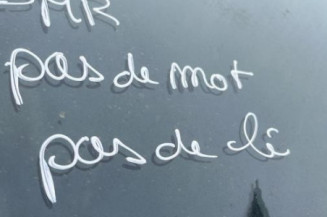 pas de mot
pas de lè